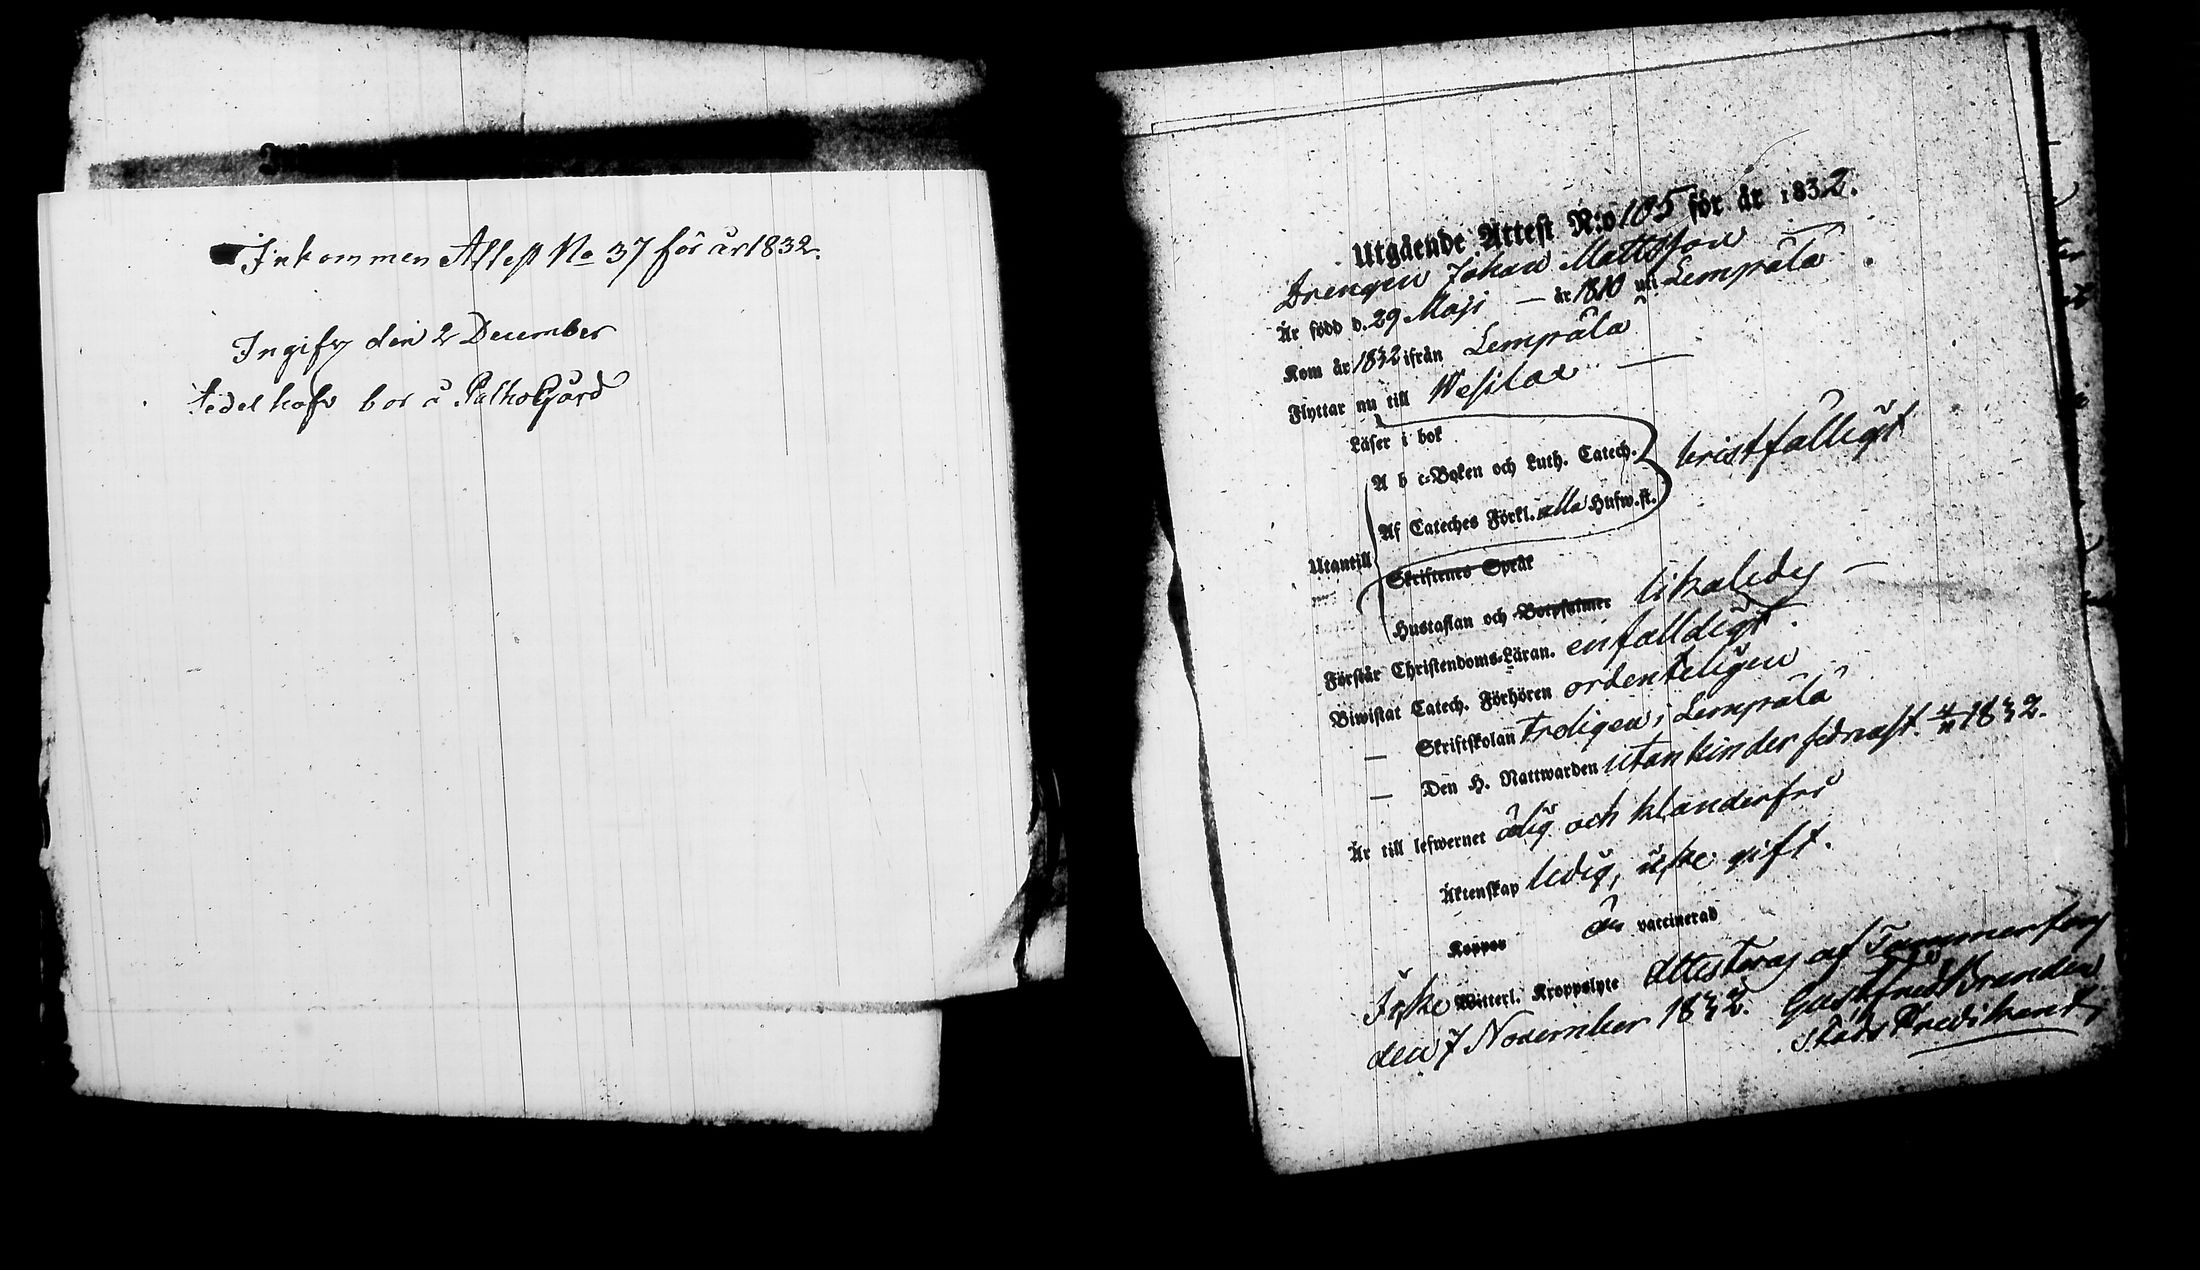 Inkommen Attest No 37 för år 1832.
Ingifv den 2 December
bor å Palho Gård
Utgående Attest N:o 105 för år 1832.
Drengen Johan Mattsson
Är född d. 29 Maji — år 1810 uti Lempälä
Kom år 1832 ifrån Lempälä
Flyttar nu till Wesilax —
Läser i bok
A b c-Boken och Luth. Catech.
bristfälligt
Af Cateches Förkl. alla Hufw.st.
Utantill
Skriftenes Språk
Hustaflan och Botpsalmer likaledes —
Förstår Christendoms-Läran. enfaldigt.
Biwistat Catech. Förhören ordenteligen
— Skriftskolan troligen i Lempälä
— Den H. Nattwarden utan hinder sednast 1832.
Är till lefwernet ärlig och klanderfri
Äktenskap ledig, icke gift.
Koppor är vaccinerad
Icke Witterl. Kroppslyte Attesteras af Tammerfors
den 7 November 1832. Gust. Fred. Brander
Stads Predikant